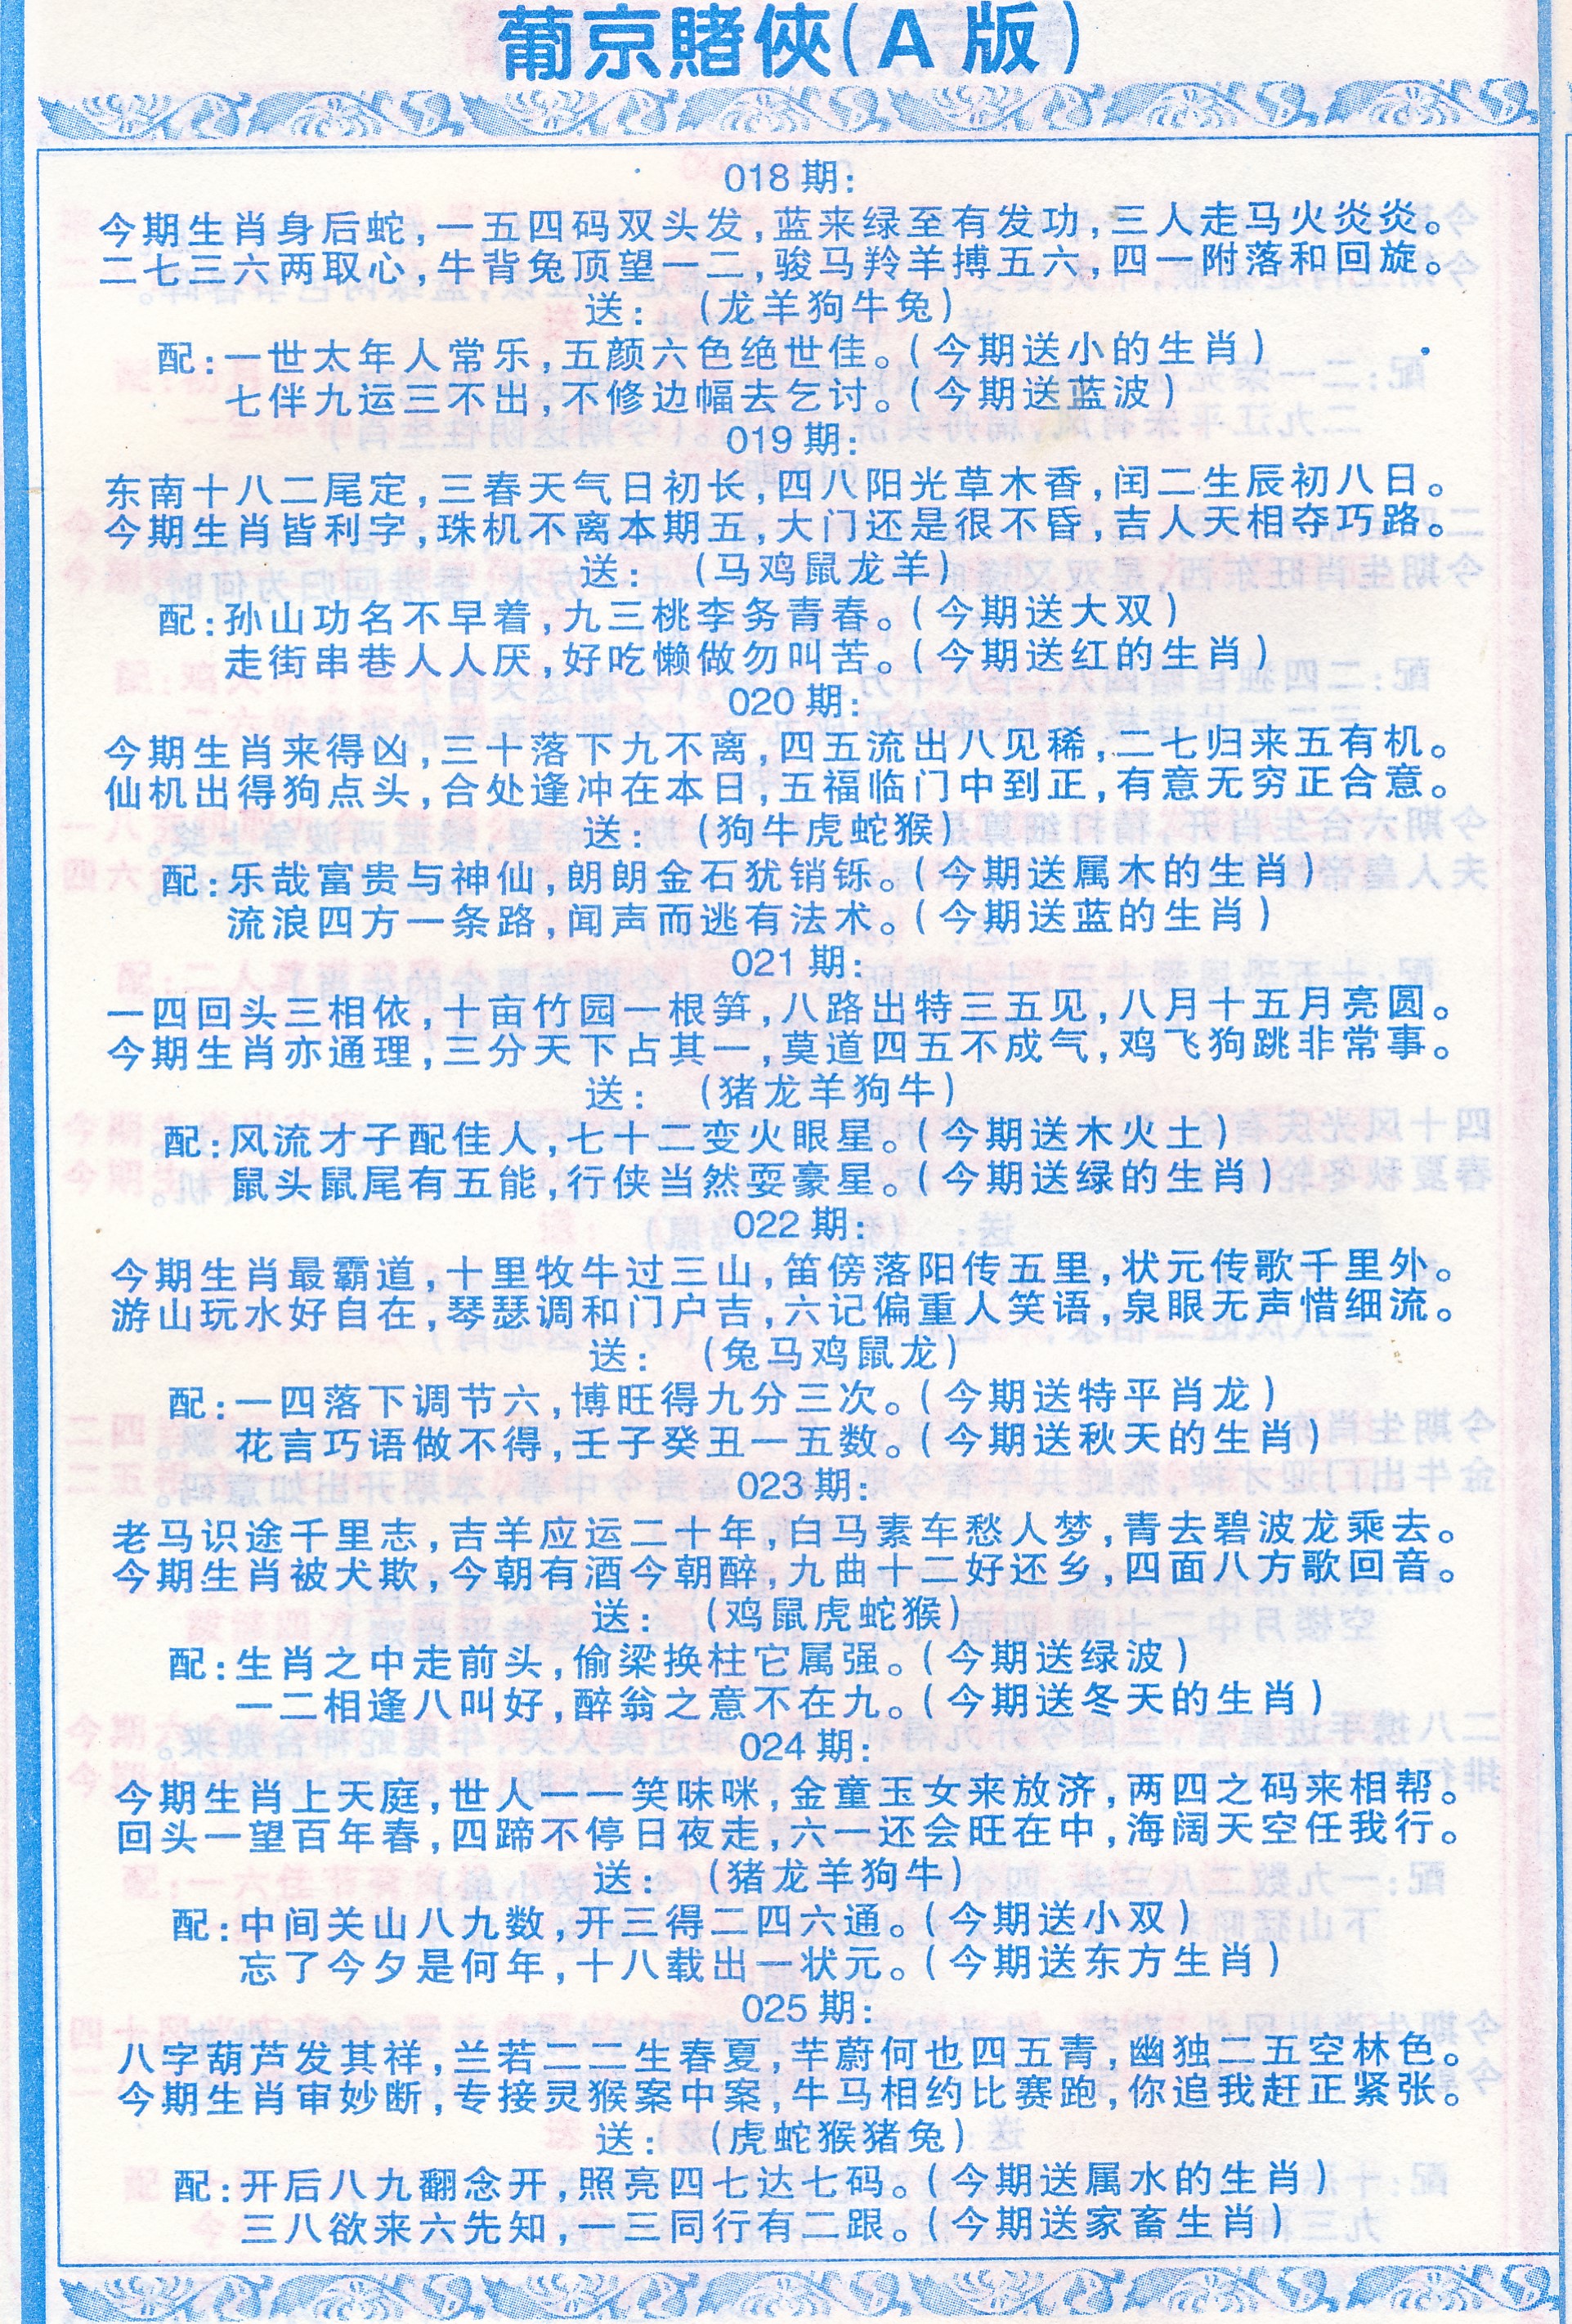 葡京賭俠(A 版)
018期:
今期生肖身后蛇,一五四码双头发,蓝来绿至有发功,三人走马火炎炎。
二七三六两取心,牛背兔顶望一二,骏马羚羊搏五六,四一附落和回旋。
送: (龙羊狗牛兔)
配:一世太年人常乐,五颜六色绝世佳。(今期送小的生肖)
七伴九运三不出,不修边幅去乞讨。(今期送蓝波)
019期:
东南十八二尾定,三春天气日初长,四八阳光草木香,闰二生辰初八日。
今期生肖皆利字,珠机不离本期五,大门还是很不昏,吉人天相夺巧路。
送: (马鸡鼠龙羊)
配:孙山功名不早着,九三桃李务青春。(今期送大双)
走街串巷人人厌,好吃懒做勿叫苦。(今期送红的生肖)
020期:
今期生肖来得凶,三十落下九不离,四五流出八见稀,二七归来五有机。
仙机出得狗点头,合处逢冲在本日,五福临门中到正,有意无穷正合意。
送: (狗牛虎蛇猴)
配:乐哉富贵与神仙,朗朗金石犹销铄。(今期送属木的生肖)
流浪四方一条路,闻声而逃有法术。(今期送蓝的生肖)
021期:
一四回头三相依,十亩竹园一根笋,八路出特三五见,八月十五月亮圆。
今期生肖亦通理,三分天下占其一,莫道四五不成气,鸡飞狗跳非常事。
送: (猪龙羊狗牛)
配:风流才子配佳人,七十二变火眼星。(今期送木火土)
鼠头鼠尾有五能,行侠当然耍豪星。(今期送绿的生肖)
022期:
今期生肖最霸道,十里牧牛过三山,笛傍落阳传五里,状元传歌千里外。
游山玩水好自在,琴瑟调和门户吉,六记偏重人笑语,泉眼无声惜细流。
送: (兔马鸡鼠龙)
配:一四落下调节六,博旺得九分三次。(今期送特平肖龙)
花言巧语做不得,壬子癸丑一五数。(今期送秋天的生肖)
023期:
老马识途千里志,吉羊应运二十年,白马素车愁人梦,青去碧波龙乘去。
今期生肖被犬欺,今朝有酒今朝醉,九曲十二好还乡,四面八方歌回音。
送: (鸡鼠虎蛇猴)
配:生肖之中走前头,偷梁换柱它属强。(今期送绿波)
一二相逢八叫好,醉翁之意不在九。(今期送冬天的生肖)
024期:
今期生肖上天庭,世人一一笑味咪,金童玉女来放济,两四之码来相帮。
回头一望百年春,四蹄不停日夜走,六一还会旺在中,海阔天空任我行。
送: (猪龙羊狗牛)
配:中间关山八九数,开三得二四六通。(今期送小双)
忘了今夕是何年,十八载出一状元。(今期送东方生肖)
025期:
八字葫芦发其祥,兰若二二生春夏,芊蔚何也四五青,幽独二五空林色。
今期生肖审妙断,专接灵猴案中案,牛马相约比赛跑,你追我赶正紧张。
送: (虎蛇猴猪兔)
配:开后八九翻念开,照亮四七达七码。(今期送属水的生肖)
三八欲来六先知,一三同行有二跟。(今期送家畜生肖)